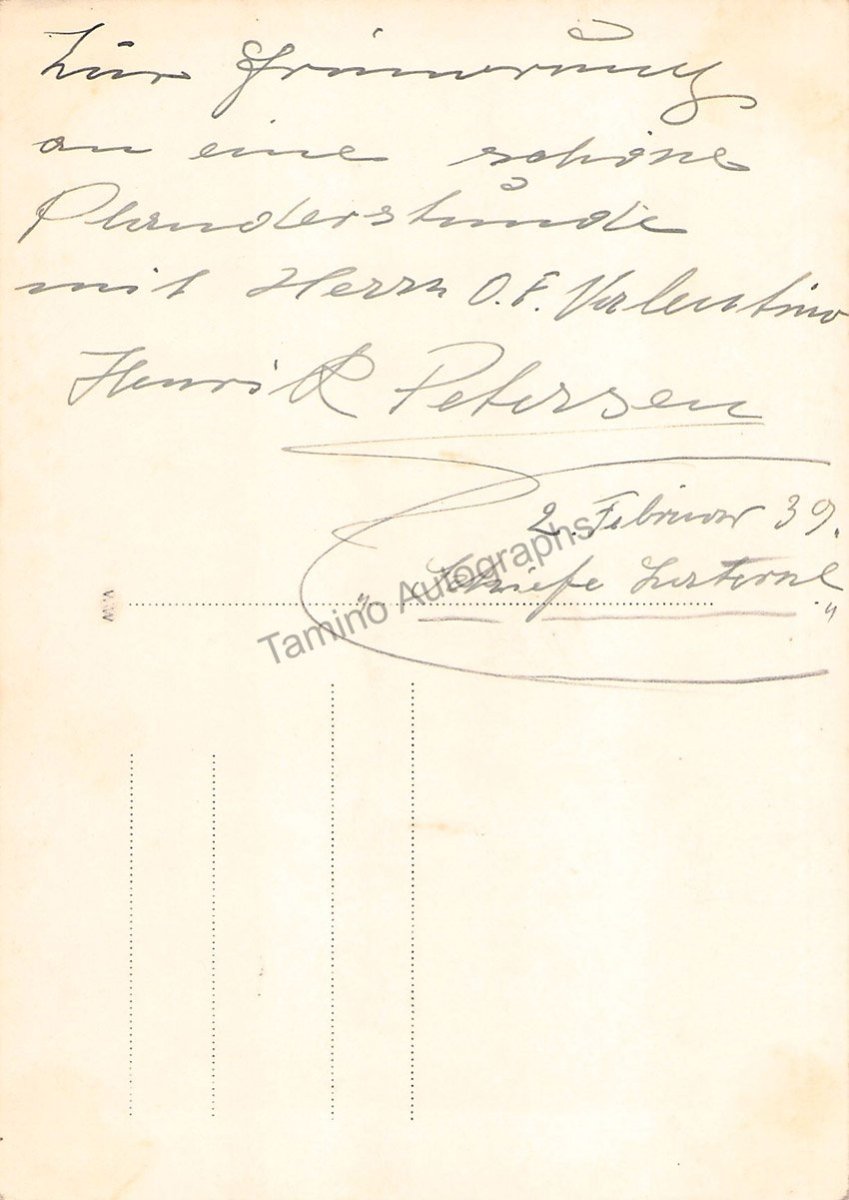 Zur Erinnerung
an eine schöne
Plauderstunde
mit Herrn O. F. Valentino
Henrik Petersen
2. Februar 39.
„Schiefe Laterne"
v.w
Tamino Autographs